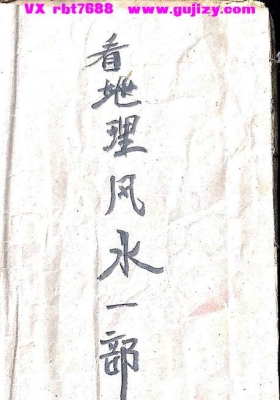 VX rbt7688 www.gujizy.com
看地理风水一部